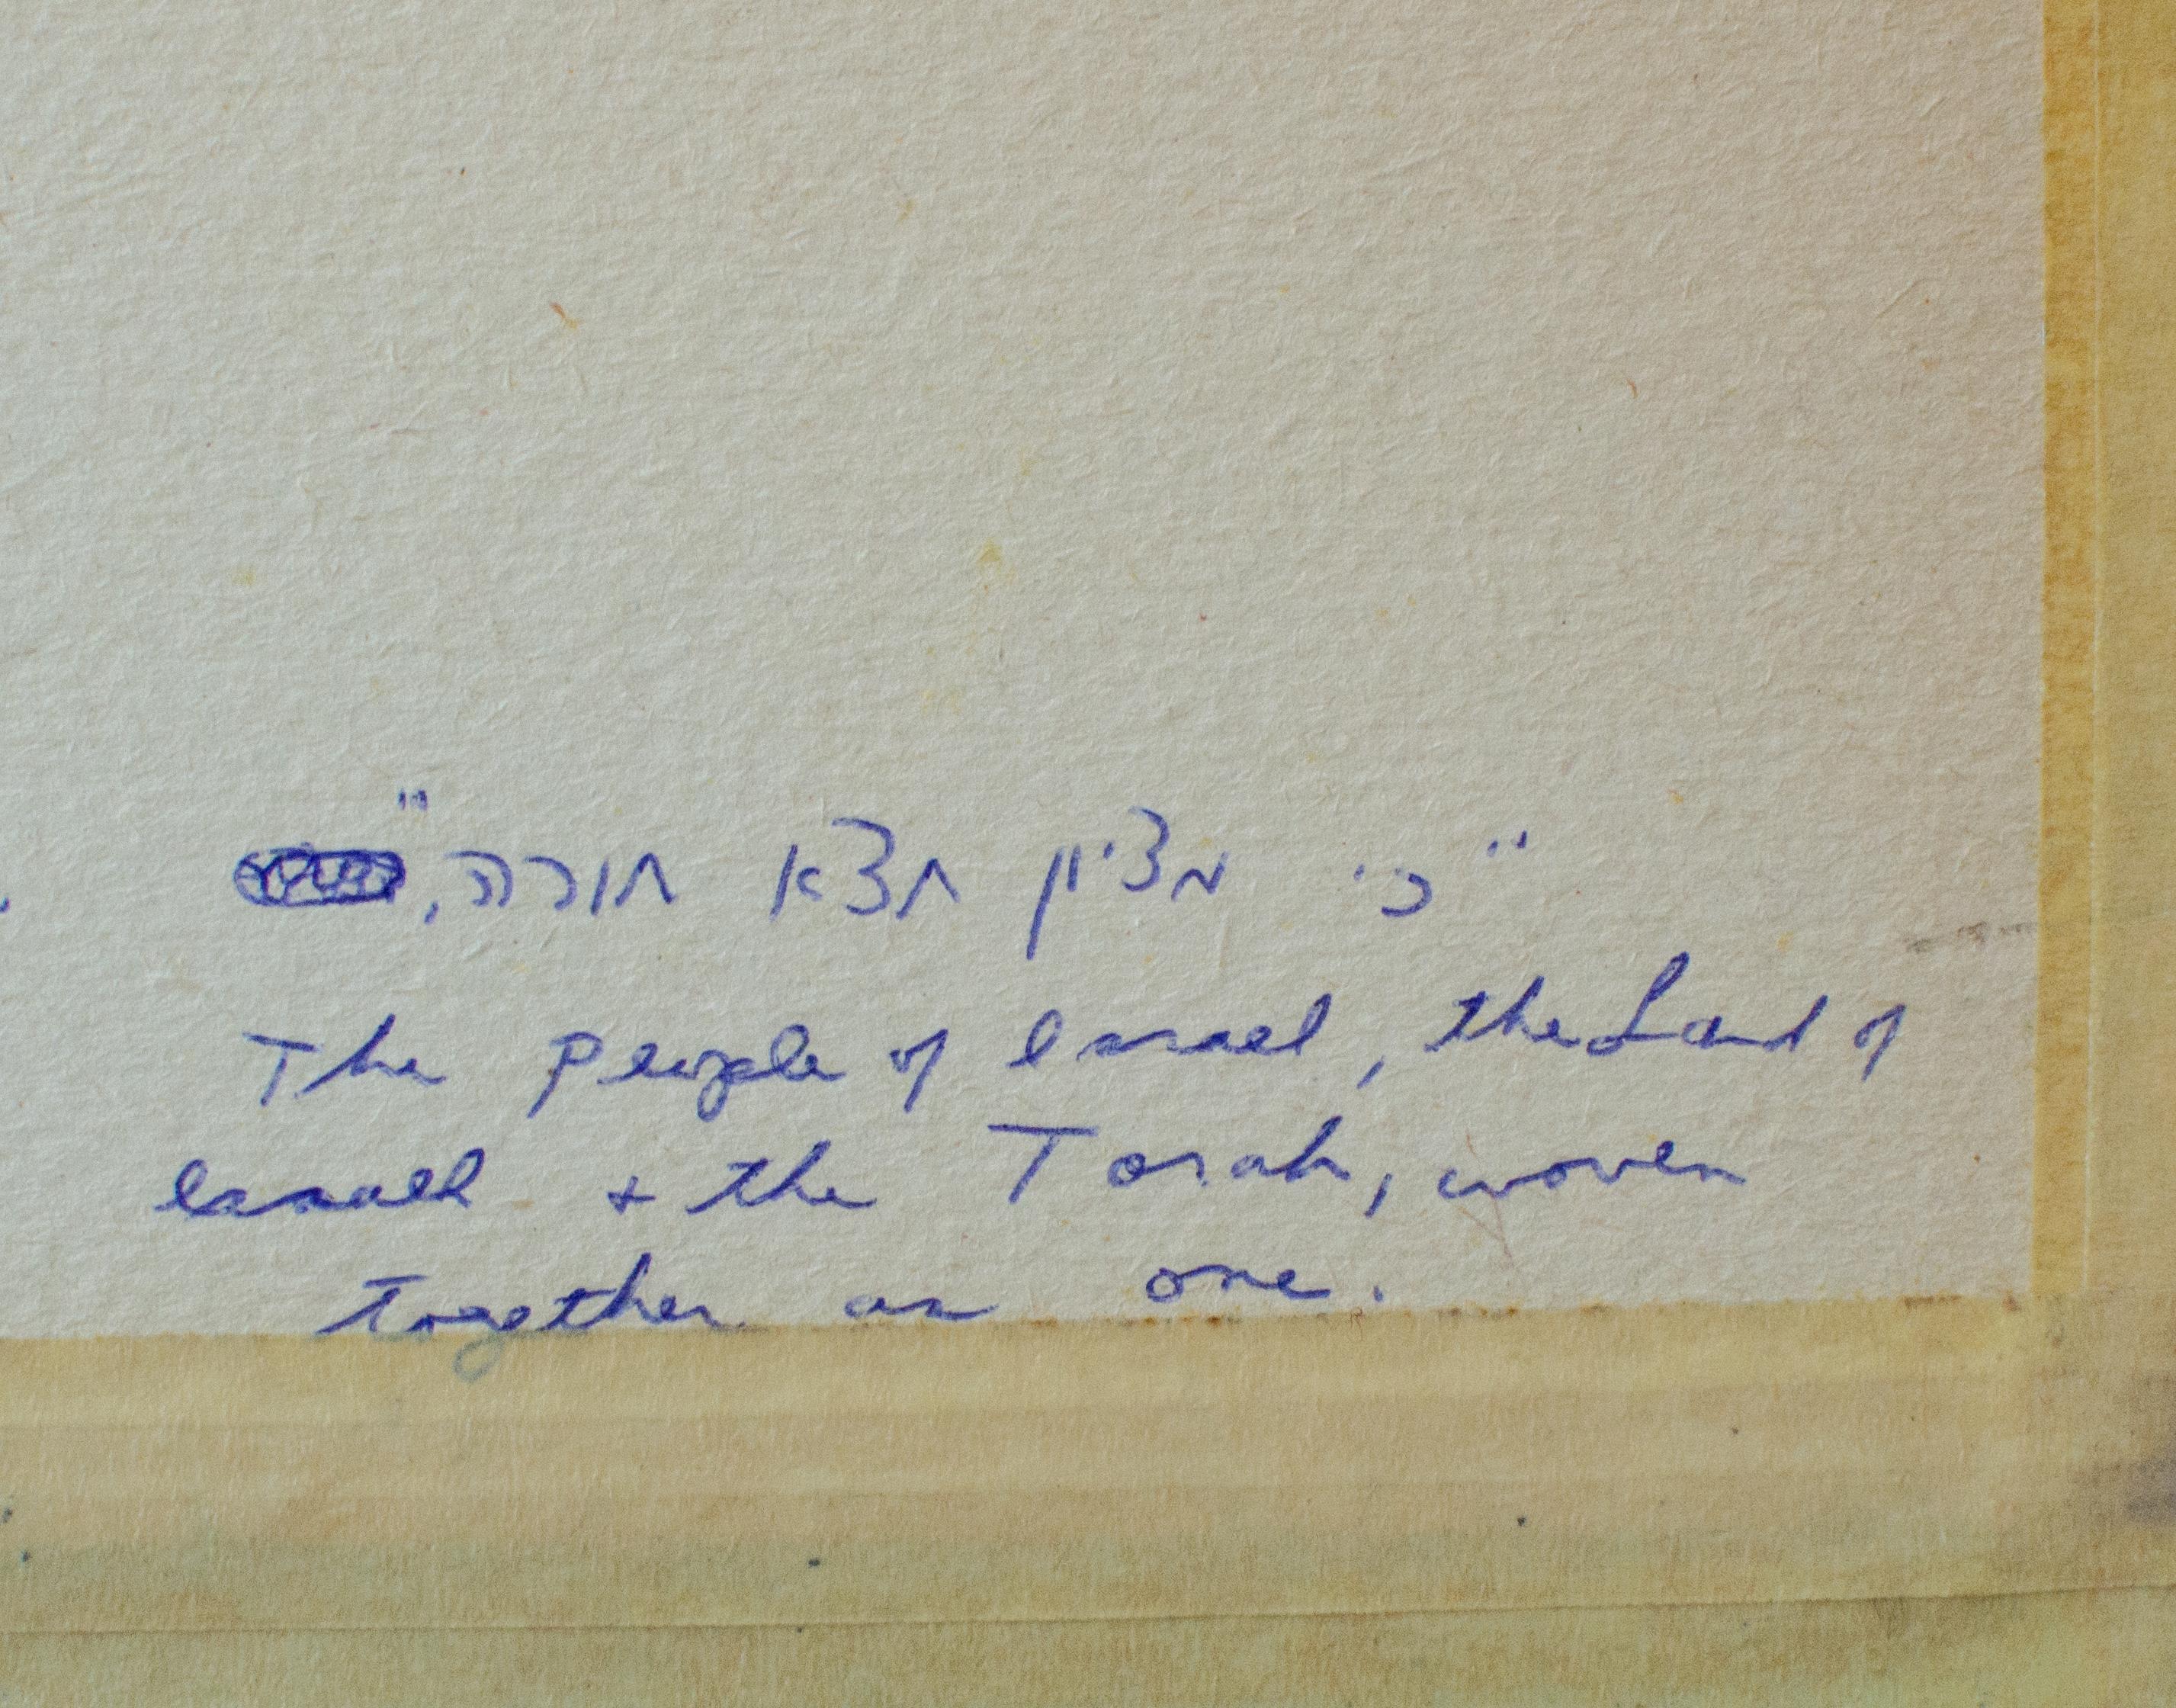 "כי מציון תצא תורה,"
The people of Israel, the Land of
Israel + the Torah, woven
together as one.